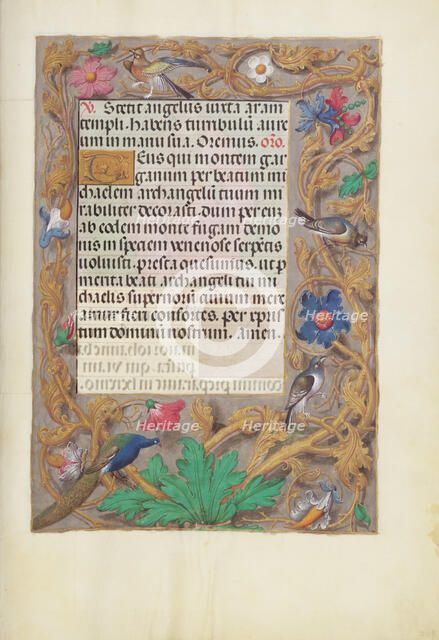 V. Stetit angelus iuxta aram
templi. habens turibulum aure
um in manu sua. Oremus. oro.
Deus qui montem gar
ganum per beatum mi
chaelem archangelū tuum mi
rabiliter decorasti. dum per eū
ab eodem monte fugam demo
nis in speciem venenose serpētis
voluisti. presta quesumus. ut p
menta beati archangeli tui mi
chaelis supernorū civium mere
amur fieri consortes. Per xpus
tum dominū nostrum. Amen.
Heritage
Heritage
Heritage
Heritage
Heritage
Heritage